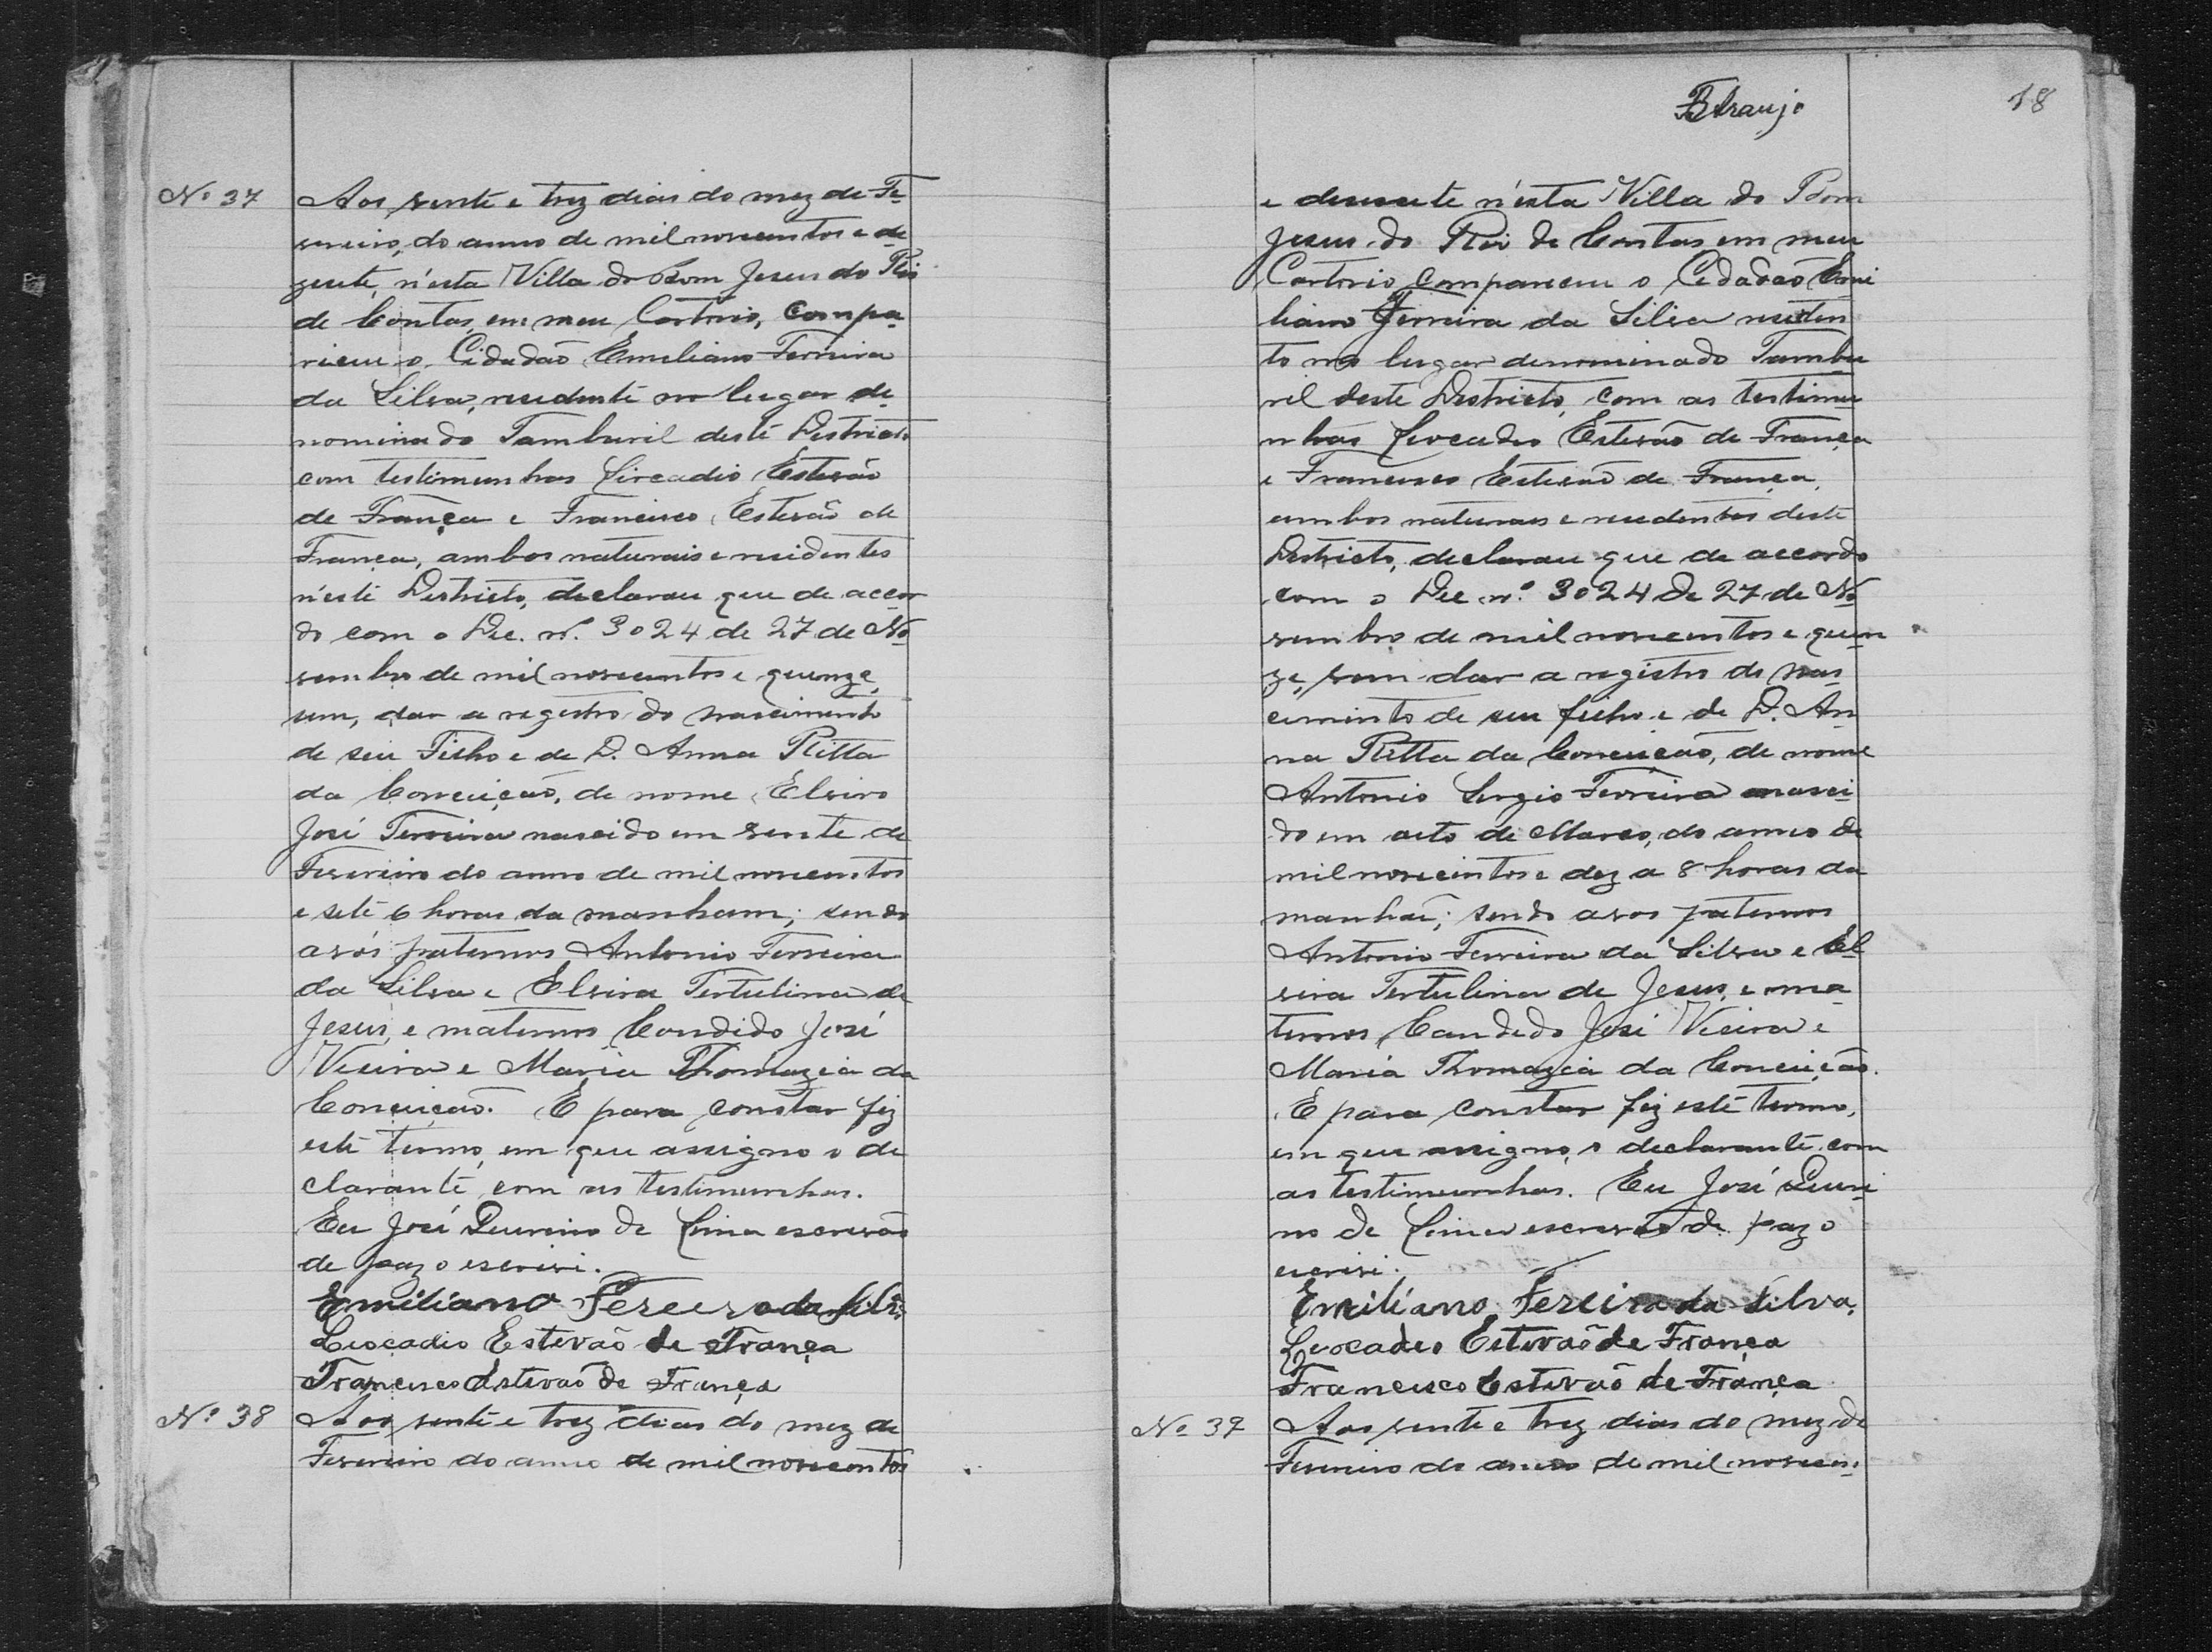 Nº 37
Aos vente e trez dias do mez de Fe-
vereiro, do anno de mil novecentos e de-
zesete, n'esta Villa do Bom Jesus do Rio
de Contas, em meu Cartorio, compa-
receu o Cidadão Emeliano Ferreira
da Silva, residente no lugar de-
nominado Tamburil deste Destricto
com testimunhas Leocadio Estevão
de França e Francisco Estevão de
França, ambos naturais e residentes
n'este Destricto, declarou que de accor-
do com o Dec. nº. 3024 de 27 de No-
vembro de mil novecentos e quenze,
vem, dar a registro do nascimento
de seu Filho e de D. Anna Ritta
da Conceição, de nome Elviro
José Ferreira nascido em vente de
Fevereiro do anno de mil novecentos
e sete 6 horas da manham; sendo
avós paternos Antonio Ferreira
da Silva e Elvira Tertulina de
Jesus, e maternos Candido José
Vieira e Maria Thomazia da
Conceição. E para constar fiz
este termo, em que assigno o de
clarante com as testimunhas.
Eu José Quirino de Lima escrivão
de paz o escrivi.
Emiliano Fereira da Silva
Leocadio Estevão de França
Francisco Estevão de França
Nº 38
Aos vente e trez dias do mez de
Fevereiro do anno de mil novecentos
BAraujo
18
e desesete n'esta Villa do Bom
Jesus do Rio de Contas em meu
Cartorio compareceu o Cedadão Emi
liano Ferreira da Silva residen
te no lugar denominado Tambu
ril deste Destricto, com as testimu
nhas Leocadio Estevão de França
e Francisco Estevão de França,
ambos naturaes e residentes deste
Destricto, declarou que de accordo
com o Dec. nº. 3024 de 27 de No
vembro de mil novecentos e quen-
ze, vem dar a registro do nas-
cimento de seu filho e de D. An-
na Ritta da Conceição, de nome
Antonio Sergio Ferreira nasci-
do em oito de Março, do anno de
mil novecentos e dez a 8 horas da
manhã; sendo avos paternos
Antonio Ferreira da Silva e El-
vira Tertulina de Jesus, e ma-
ternos, Candedo José Vieira e
Maria Thomazia da Conceição.
E para constar fiz este termo,
em que assigno o declarante com
as testimunhas. Eu José Quiri
no de Lima escrivão de paz o
escrivi.
Emiliano Fereira da Silva.
Leocadio Estevão de França
Francisco Estevão de França
Nº 39
Aos vente e trez dias do mez de
Fevereiro do anno de mil novecen-